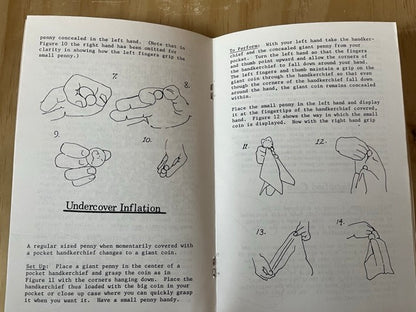 penny concealed in the left hand. (Note that in
Figure 10 the right hand has been omitted for
clarity in showing how the left fingers grip the
small penny.)
7.
8.
9.
10.
Undercover Inflation
A regular sized penny when momentarily covered with
a pocket handkerchief changes to a giant coin.
Set Up: Place a giant penny in the center of a
pocket handkerchief and grasp the coin as in
Figure 11 with the corners hanging down. Place the
handkerchief thus loaded with the big coin in your
pocket or close up case where you can quickly grasp
it when you want it. Have a small penny handy.
To Perform: With your left hand take the handker-
chief and the concealed giant penny from your
pocket. Turn the left hand so that the fingers
and thumb point upward and allow the corners of
the handkerchief to fall down around your hand.
The left fingers and thumb maintain a grip on the
giant coin through the handkerchief so that even
though the corners of the handkerchief fall down
around the hand, the giant coin remains concealed
within.
Place the small penny in the left hand and display
it at the fingertips of the handkerchief covered,
hand. Figure 12 shows the way in which the small
coin is displayed. Now with the right hand grip
11.
12.
13.
14.